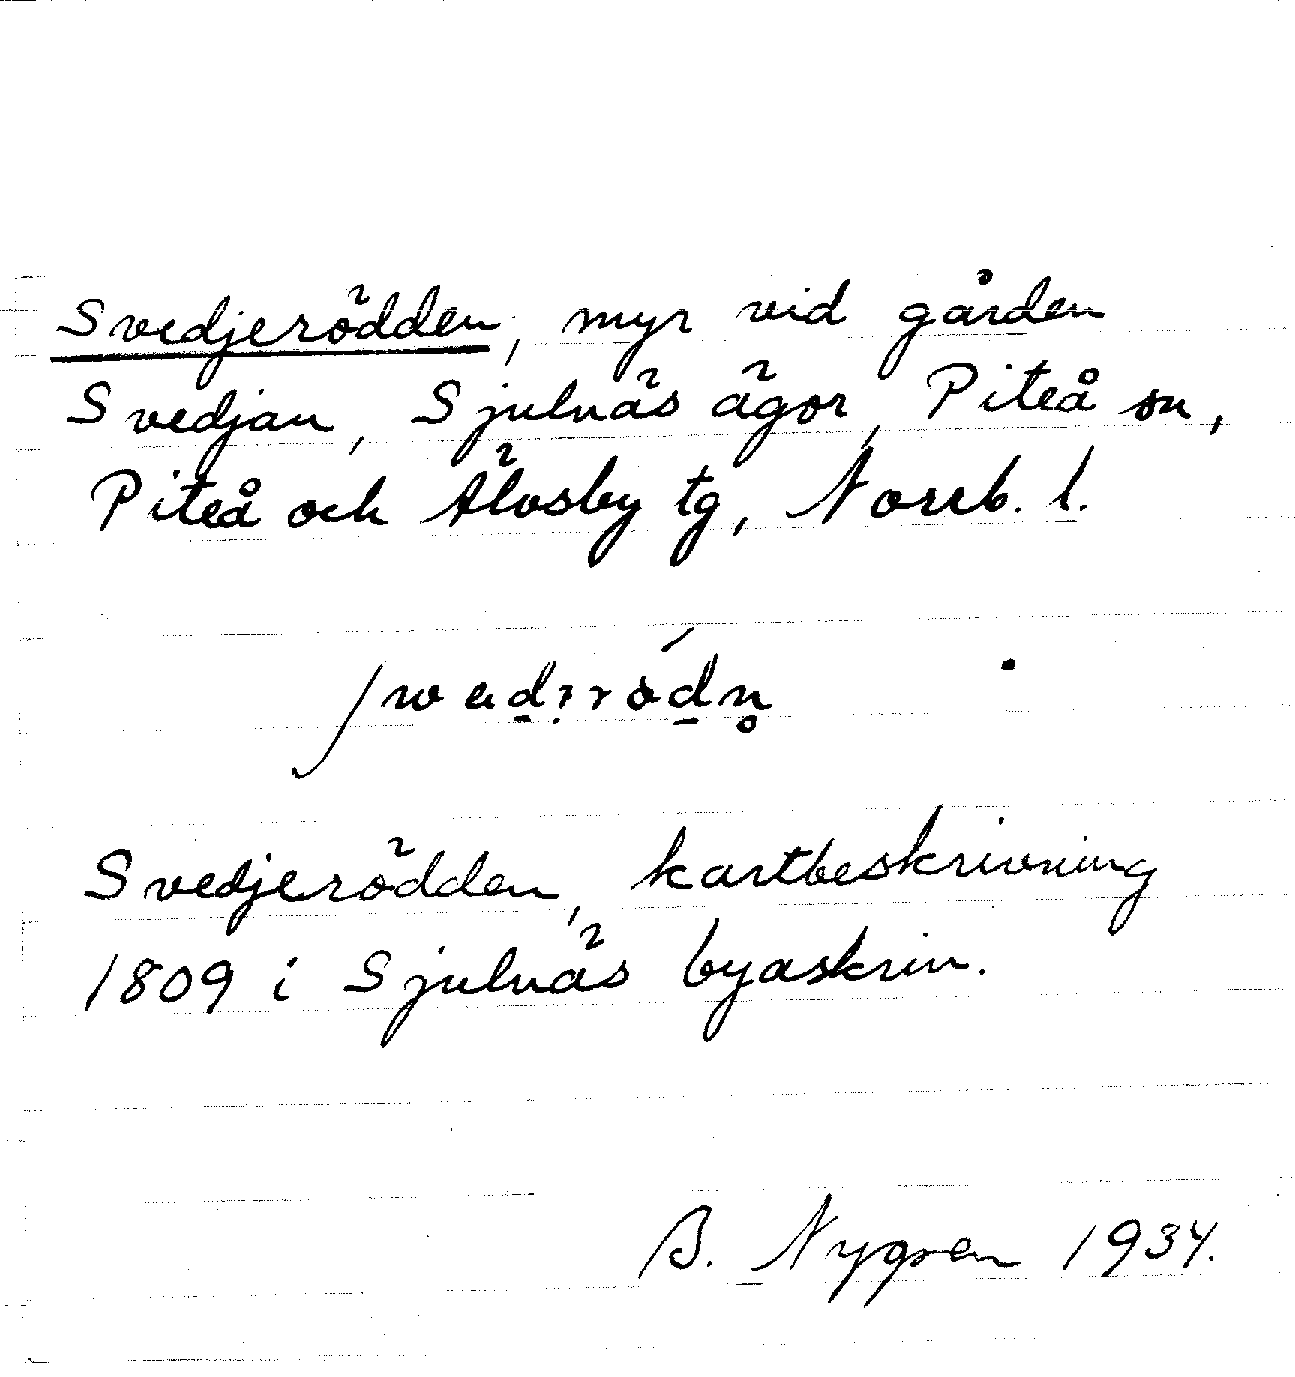 Svedjerödden, myr vid gården
Svedjan, Sjulnäs ägor, Piteå sn,
Piteå och Älvsby tg, Norrb. l.
Svedjerödden, kartbeskrivning
1809 i Sjulnäs byaskrin.
B. Nygren 1934.